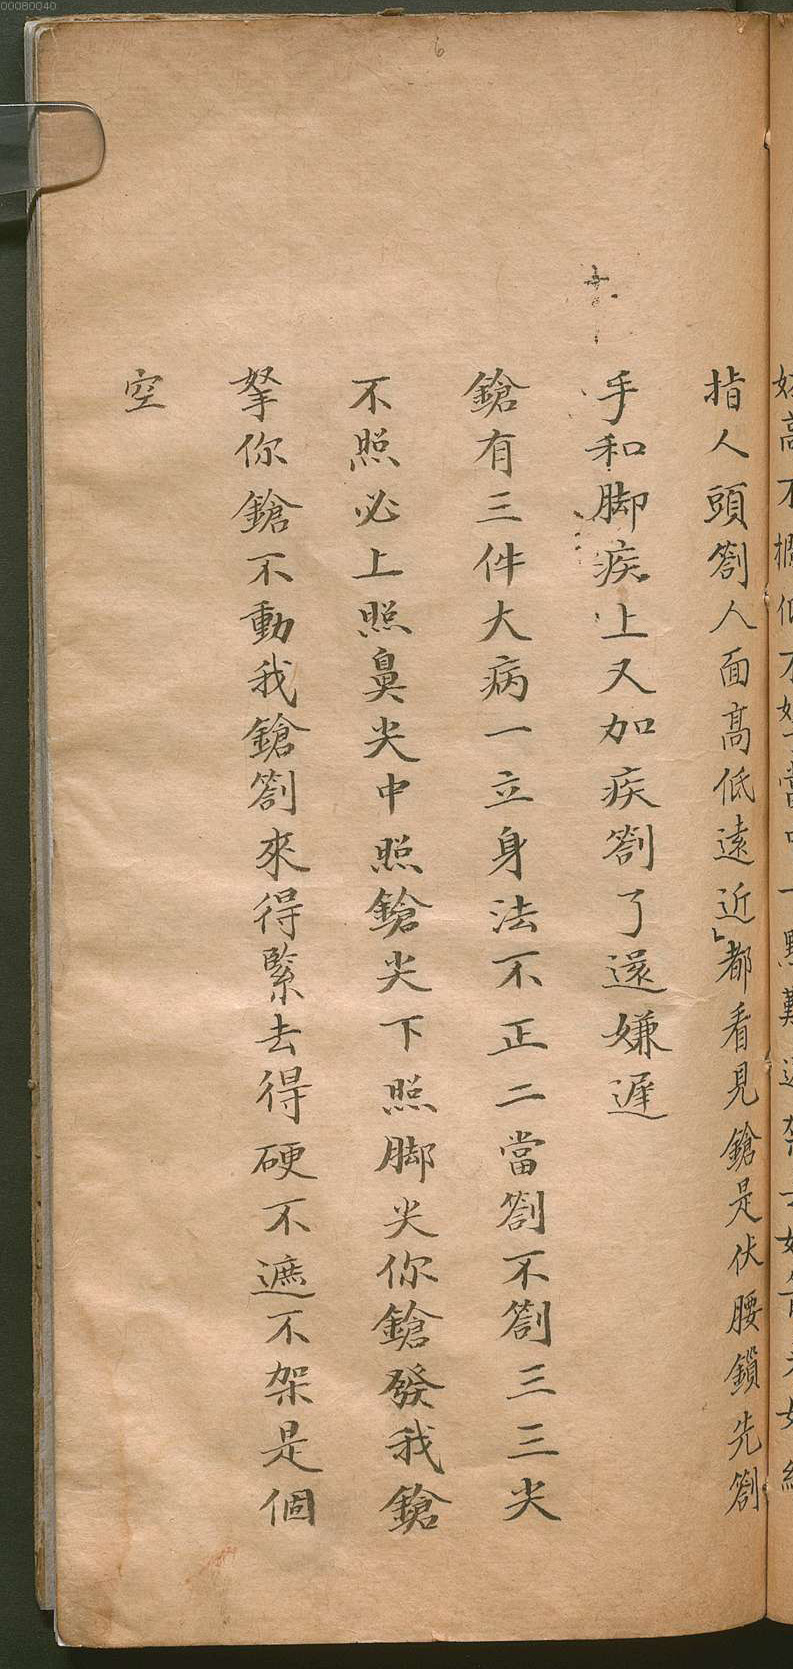 00080040
6
好高不攔低不
當中一點難
指人頭劄人面高低遠近都看見鎗是伏腰鎖先劄
手和脚疾上又加疾劄了還嫌遲
鎗有三件大病一立身法不正二當劄不劄三三尖
不照必上照鼻尖中照鎗尖下照脚尖你鎗發我鎗
拏你鎗不動我鎗劄來得緊去得硬不遮不架是個
空